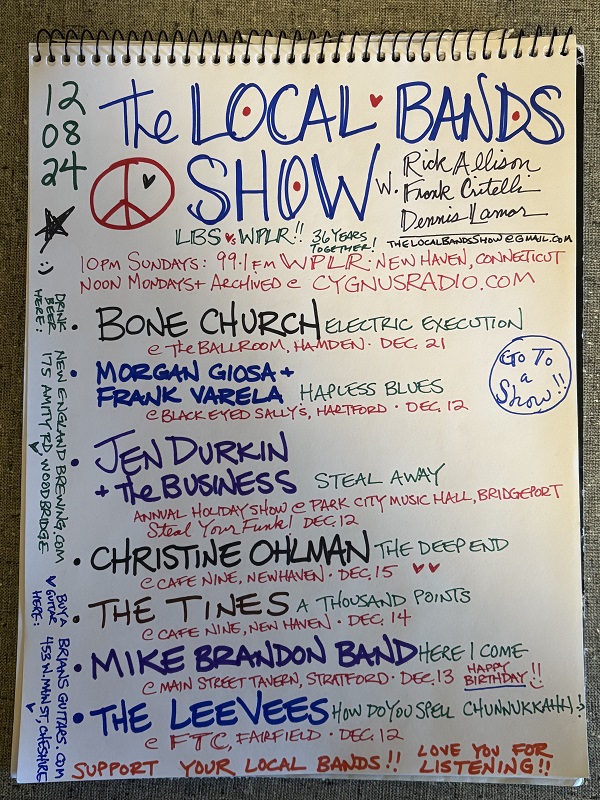 12
08
24
The LOCAL BANDS
SHOW w. Rick Allison
Frank Critelli
Dennis Lamar
LBS ♥s WPLR!! 36 YEARS
TOGETHER!
THELOCALBANDSSHOW@GMAIL.COM
10PM SUNDAYS: 99.1 FM WPLR: NEW HAVEN, CONNECTICUT
NOON MONDAYS + ARCHIVED @ CYGNUSRADIO.COM
:)
DRINK
BEER
HERE:
NEW ENGLAND BREWING.COM
175 AMITY RD, WOODBRIDGE
BUY A
GUITAR
HERE:
BRIANSGUITARS.COM
453 N. MAIN ST, CHESHIRE
• BONE CHURCH ELECTRIC EXECUTION
@ THE BALLROOM, HAMDEN • DEC. 21
GO TO
a
Show!!
• MORGAN GIOSA +
FRANK VARELA HAPLESS BLUES
@ BLACK EYED SALLY'S, HARTFORD • DEC. 12
• JEN DURKIN
+ The BUSINESS STEAL AWAY
ANNUAL HOLIDAY SHOW @ PARK CITY MUSIC HALL, BRIDGEPORT
Steal Your Funk! DEC. 12
• CHRISTINE OHLMAN THE DEEP END
@ CAFE NINE, NEW HAVEN • DEC. 15 ♥♥
• THE TINES A THOUSAND POINTS
@ CAFE NINE, NEW HAVEN • DEC. 14
• MIKE BRANDON BAND HERE I COME
@ MAIN STREET TAVERN, STRATFORD • DEC. 13 HAPPY
BIRTHDAY!!
• THE LEEVEES HOW DO YOU SPELL CHUNNUKKAHH!?
@ FTC, FAIRFIELD • DEC. 12
SUPPORT YOUR LOCAL BANDS!! LOVE YOU FOR
LISTENING!!